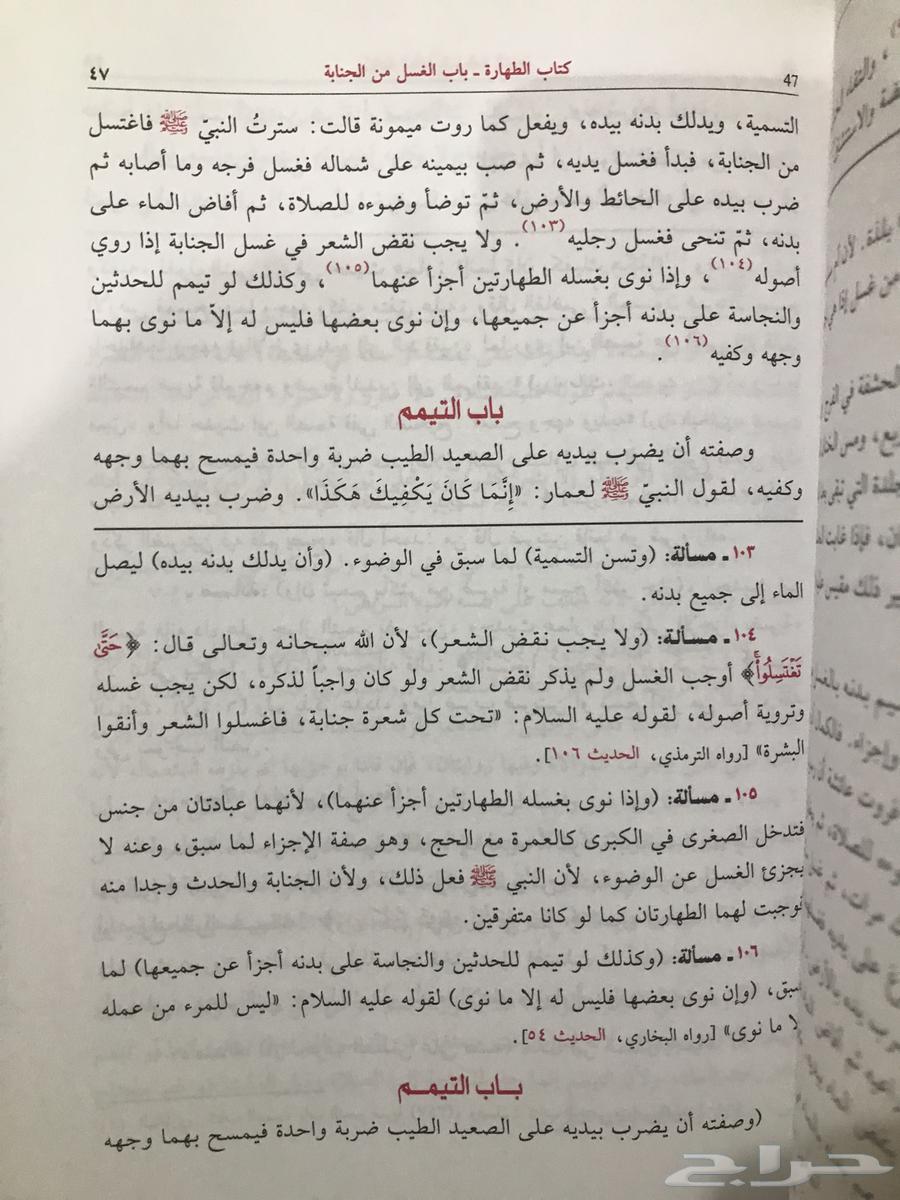 47 كتاب الطهارة - باب الغسل من الجنابة ٤٧
التسمية، ويدلك بدنه بيده، ويفعل كما روت ميمونة قالت: سترتُ النبيّ ﷺ فاغتسل
من الجنابة، فبدأ فغسل يديه، ثم صب بيمينه على شماله فغسل فرجه وما أصابه ثم
ضرب بيده على الحائط والأرض، ثمّ توضأ وضوءه للصلاة، ثم أفاض الماء على
بدنه، ثمّ تنحى فغسل رجليه(١٠٣). ولا يجب نقض الشعر في غسل الجنابة إذا روي
أصوله(١٠٤)، وإذا نوى بغسله الطهارتين أجزأ عنهما(١٠٥)، وكذلك لو تيمم للحدثين
والنجاسة على بدنه أجزأ عن جميعها، وإن نوى بعضها فليس له إلاّ ما نوى بهما
وجهه وكفيه(١٠٦).
باب التيمم
وصفته أن يضرب بيديه على الصعيد الطيب ضربة واحدة فيمسح بهما وجهه
وكفيه، لقول النبيّ ﷺ لعمار: «إِنَّمَا كَانَ يَكْفِيكَ هَكَذَا». وضرب بيديه الأرض
١٠٣ - مسألة: (وتسن التسمية) لما سبق في الوضوء. (وأن يدلك بدنه بيده) ليصل
الماء إلى جميع بدنه.
١٠٤ - مسألة: (ولا يجب نقض الشعر)، لأن الله سبحانه وتعالى قال: ﴿حَتَّىٰ
تَغْتَسِلُواْ﴾ أوجب الغسل ولم يذكر نقض الشعر ولو كان واجباً لذكره، لكن يجب غسله
وتروية أصوله، لقوله عليه السلام: «تحت كل شعرة جنابة، فاغسلوا الشعر وأنقوا
البشرة» [رواه الترمذي، الحديث ١٠٦].
١٠٥ - مسألة: (وإذا نوى بغسله الطهارتين أجزأ عنهما)، لأنهما عبادتان من جنس
فتدخل الصغرى في الكبرى كالعمرة مع الحج، وهو صفة الإجزاء لما سبق، وعنه لا
يجزئ الغسل عن الوضوء، لأن النبي ﷺ فعل ذلك، ولأن الجنابة والحدث وجدا منه
فوجبت لهما الطهارتان كما لو كانا متفرقين.
١٠٦ - مسألة: (وكذلك لو تيمم للحدثين والنجاسة على بدنه أجزأ عن جميعها) لما
سبق، (وإن نوى بعضها فليس له إلا ما نوى) لقوله عليه السلام: «ليس للمرء من عمله
إلا ما نوى» [رواه البخاري، الحديث ٥٤].
باب التيمم
(وصفته أن يضرب بيديه على الصعيد الطيب ضربة واحدة فيمسح بهما وجهه
حراج